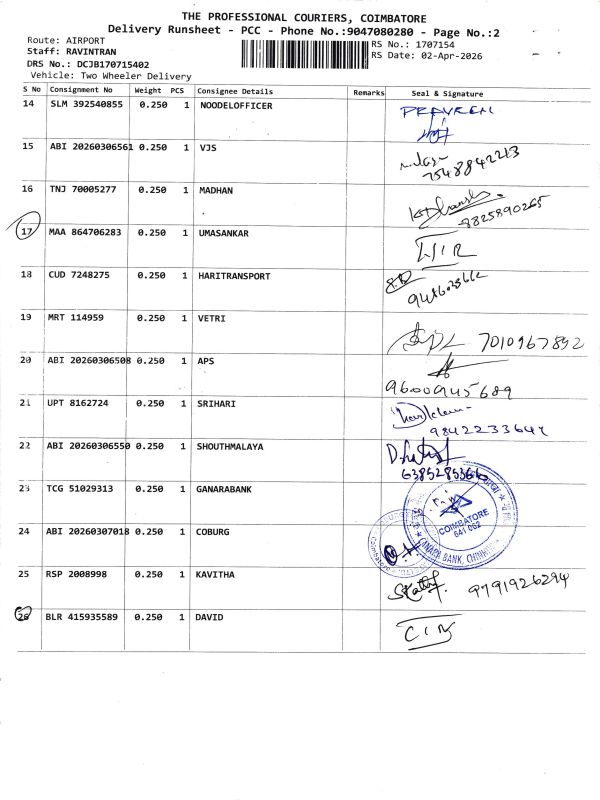 THE PROFESSIONAL COURIERS, COIMBATORE
Delivery Runsheet - PCC - Phone No.:9047080280 - Page No.:2
Route: AIRPORT
Staff: RAVINTRAN
DRS No.: DCJB170715402
Vehicle: Two Wheeler Delivery
RS No.: 1707154
RS Date: 02-Apr-2026
S No Consignment No Weight PCS Consignee Details Remarks Seal & Signature
14 SLM 392540855 0.250 1 NOODELOFFICER PRAVEEN
15 ABI 20260306561 0.250 1 VJS
7548842213
16 TNJ 70005277 0.250 1 MADHAN
8825890265
17 MAA 864706283 0.250 1 UMASANKAR
18 CUD 7248275 0.250 1 HARITRANSPORT
19 MRT 114959 0.250 1 VETRI
7010967892
20 ABI 20260306508 0.250 1 APS
9600945689
21 UPT 8162724 0.250 1 SRIHARI
9842233647
22 ABI 20260306550 0.250 1 SHOUTHMALAYA
6385285366
23 TCG 51029313 0.250 1 GANARABANK
COIMBATORE
641 062
CANARA BANK, CHINNIAM
24 ABI 20260307018 0.250 1 COBURG
25 RSP 2008998 0.250 1 KAVITHA
9791926294
26 BLR 415935589 0.250 1 DAVID